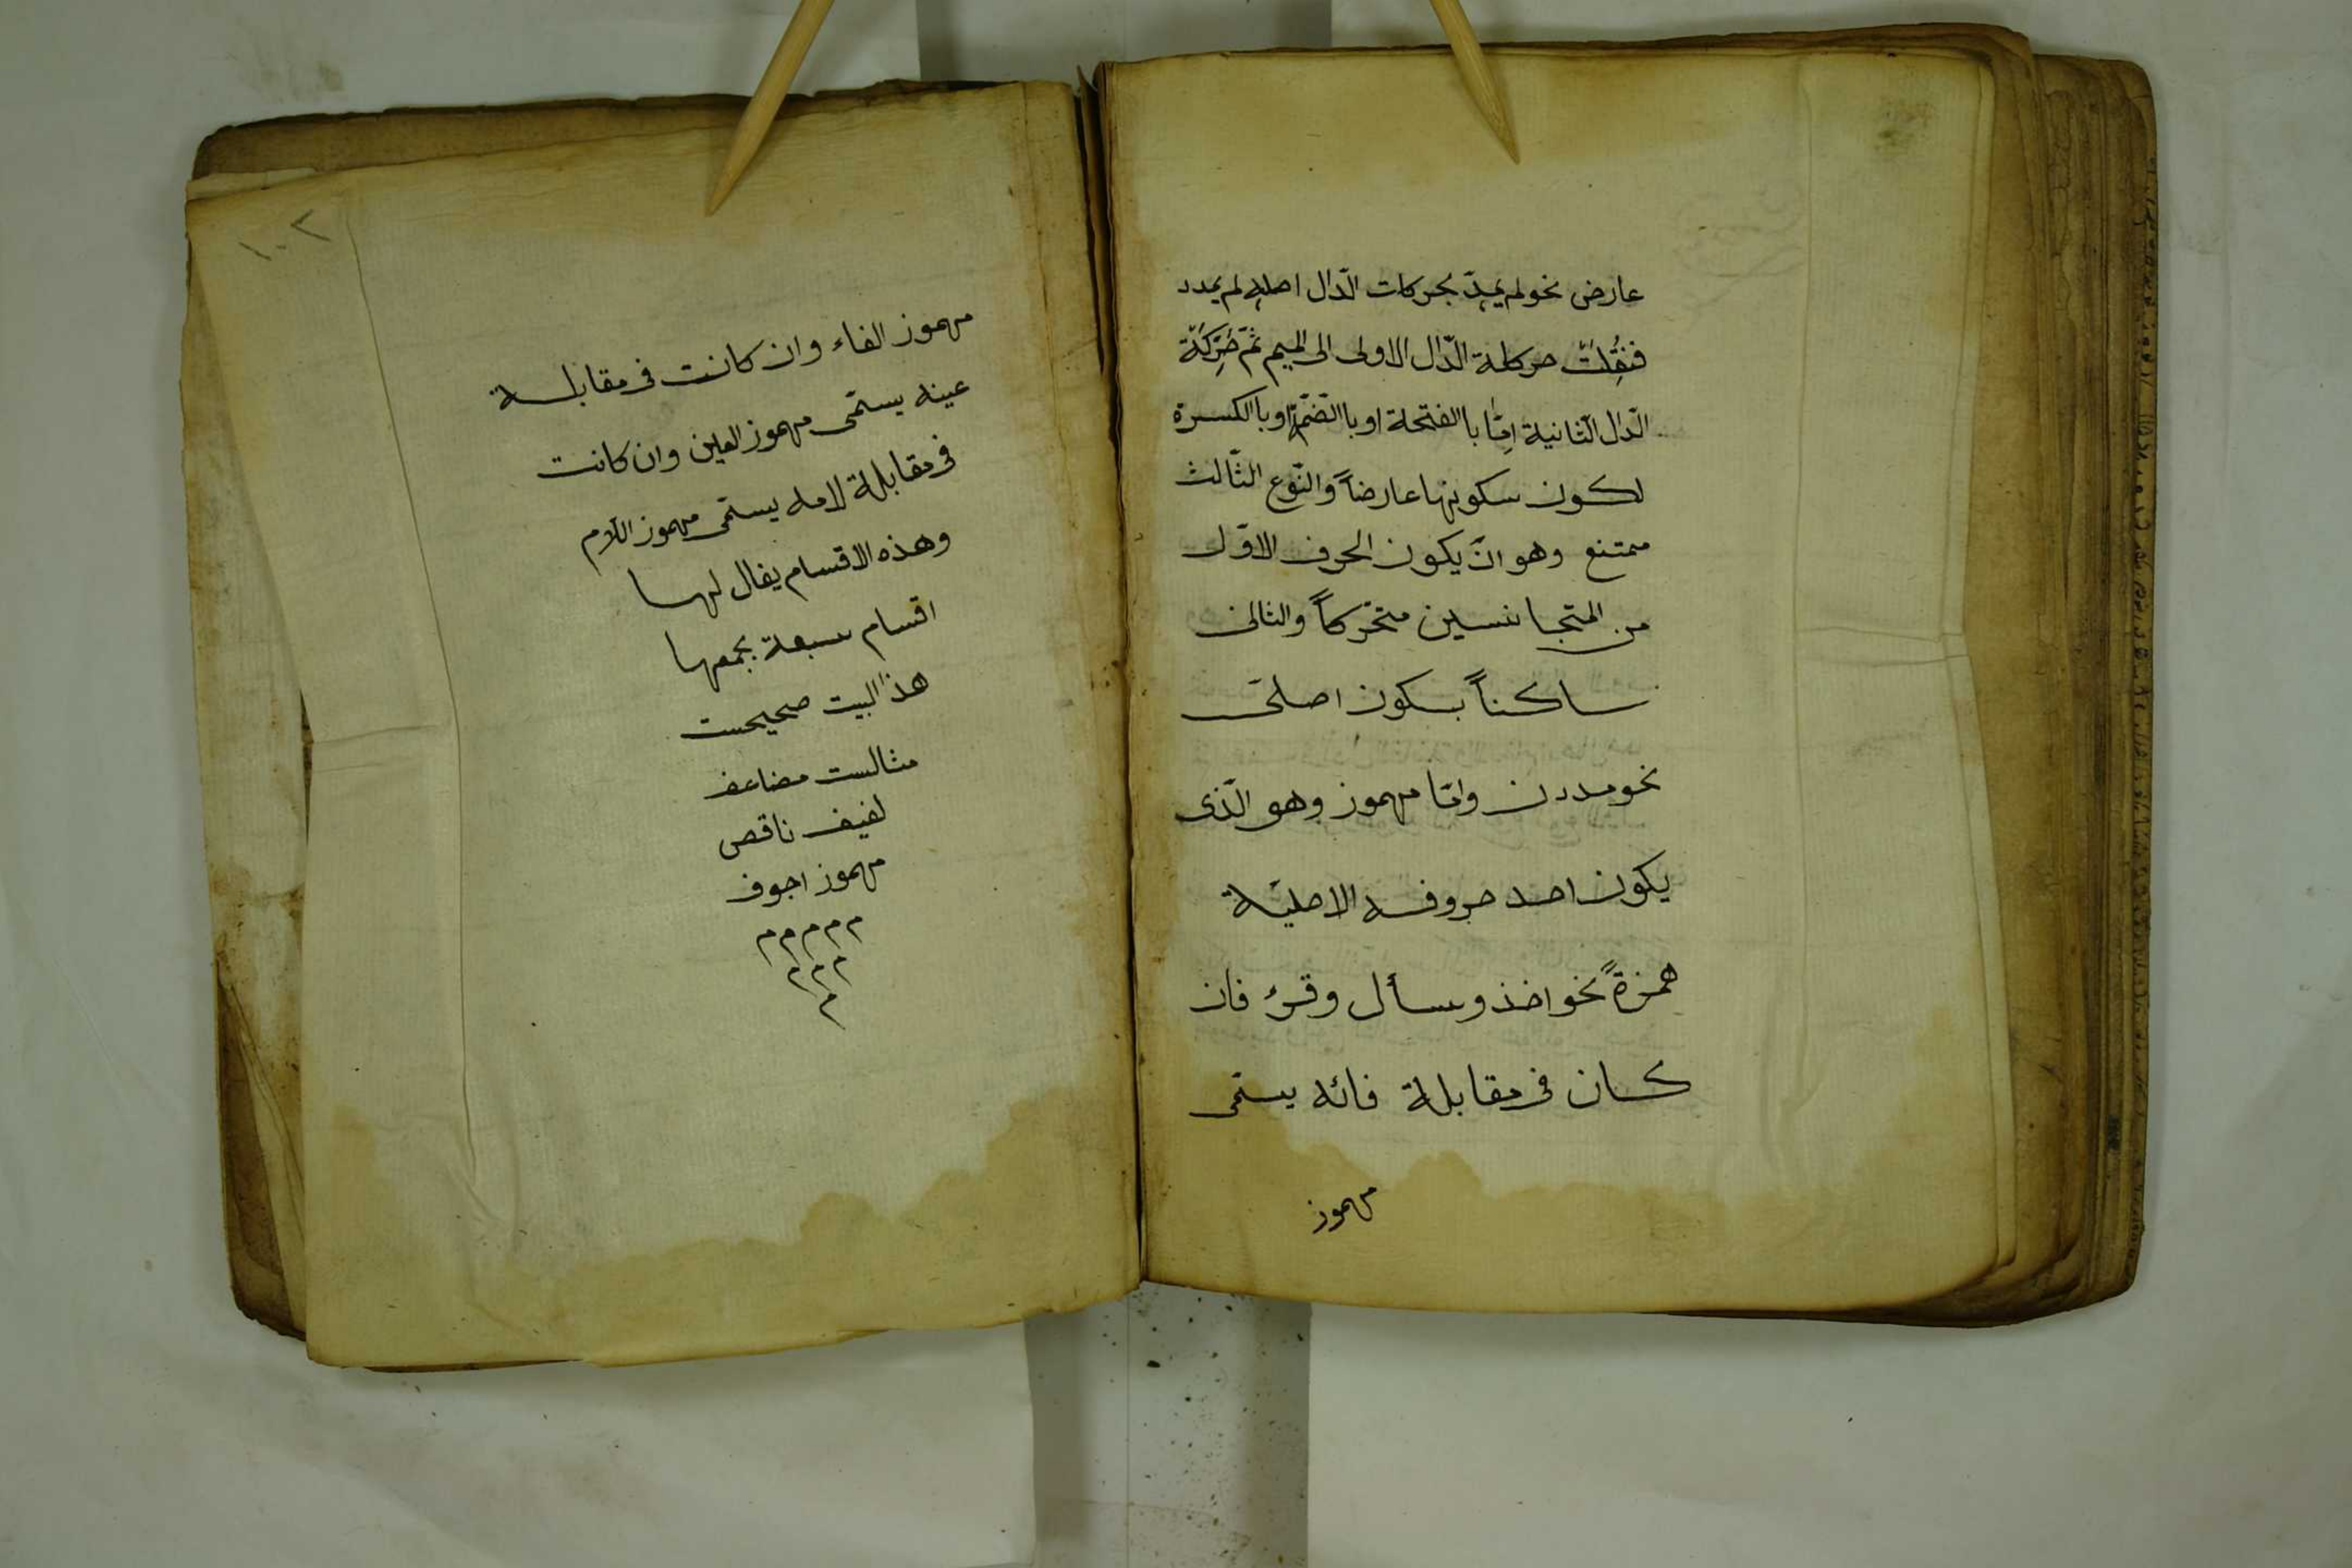 عارض نحو لم يمدّ بحركات الدّال اصله لم يمدد
فنُقِلَت حركة الدّال الاولى الى الميم ثمّ حُرِّكَة
الدّال الثّانية اِمّا با الفتحة او با الضّمّة او با الكسرة
لكون سكونها عارضاً والنّوع الثّالث
ممتنع وهو انّ يكون الحرف الاوّل
من المتجانسين متحّركاً والثانى
ساكناً بسكون اصلىّ
نحو مددن وامّا مهموز وهو الّذى
يكون احد حروفه الاصليّة
همزةً نحو اخذ وسأل وقرء فان
كان فى مقابلة فائه يسمّى
مهموز
١٠٢
مهموز الفاء وان كانت فى مقابلة
عينه يسمّى مهموز العين وان كانت
فى مقابلة لامه يسمّى مهموز اللّام
وهذه الاقسام يقال لها
اقسام سبعة يجمعها
هذا البيت صحيحست
مثالست مضاعف
لفيف ناقص
مهموز اجوف
م م م م م
م م م
م